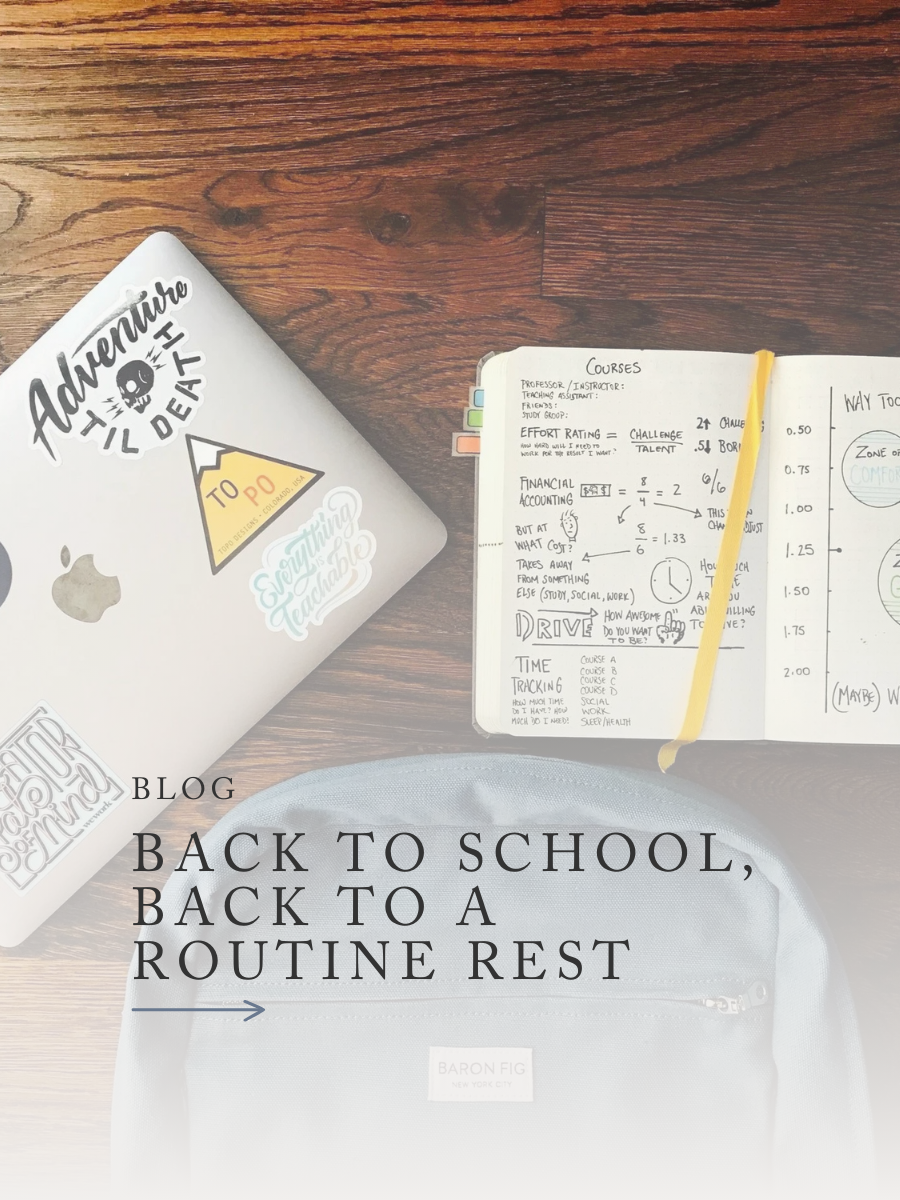 Adventure
TIL DEATH
TO PO
TOPO DESIGNS • COLORADO, USA
Everything
is
Teachable
of Mind
COURSES
PROFESSOR / INSTRUCTOR:
TEACHING ASSISTANT:
FRIENDS:
STUDY GROUP:
EFFORT RATING = CHALLENGE
TALENT
HOW HARD WILL I NEED TO
WORK FOR THE RESULT I WANT?
FINANCIAL
ACCOUNTING
= 8
4 = 2
6/6
BUT AT
WHAT COST?
8
6 = 1.33
TAKES AWAY
FROM SOMETHING
ELSE (STUDY, SOCIAL, WORK)
HOW MUCH
ARE YOU
DRIVE
HOW AWESOME
DO YOU WANT
TO BE?
TIME
TRACKING
HOW MUCH TIME
DO I HAVE? HOW
MUCH DO I NEED?
COURSE A
COURSE B
COURSE C
COURSE D
SOCIAL
WORK
SLEEP/HEALTH
WAY TOO
0.50
0.75
1.00
1.25
1.50
1.75
2.00
ZONE OF
(MAYBE) W
BLOG
BACK TO SCHOOL,
BACK TO A
ROUTINE REST
BARON FIG
NEW YORK CITY